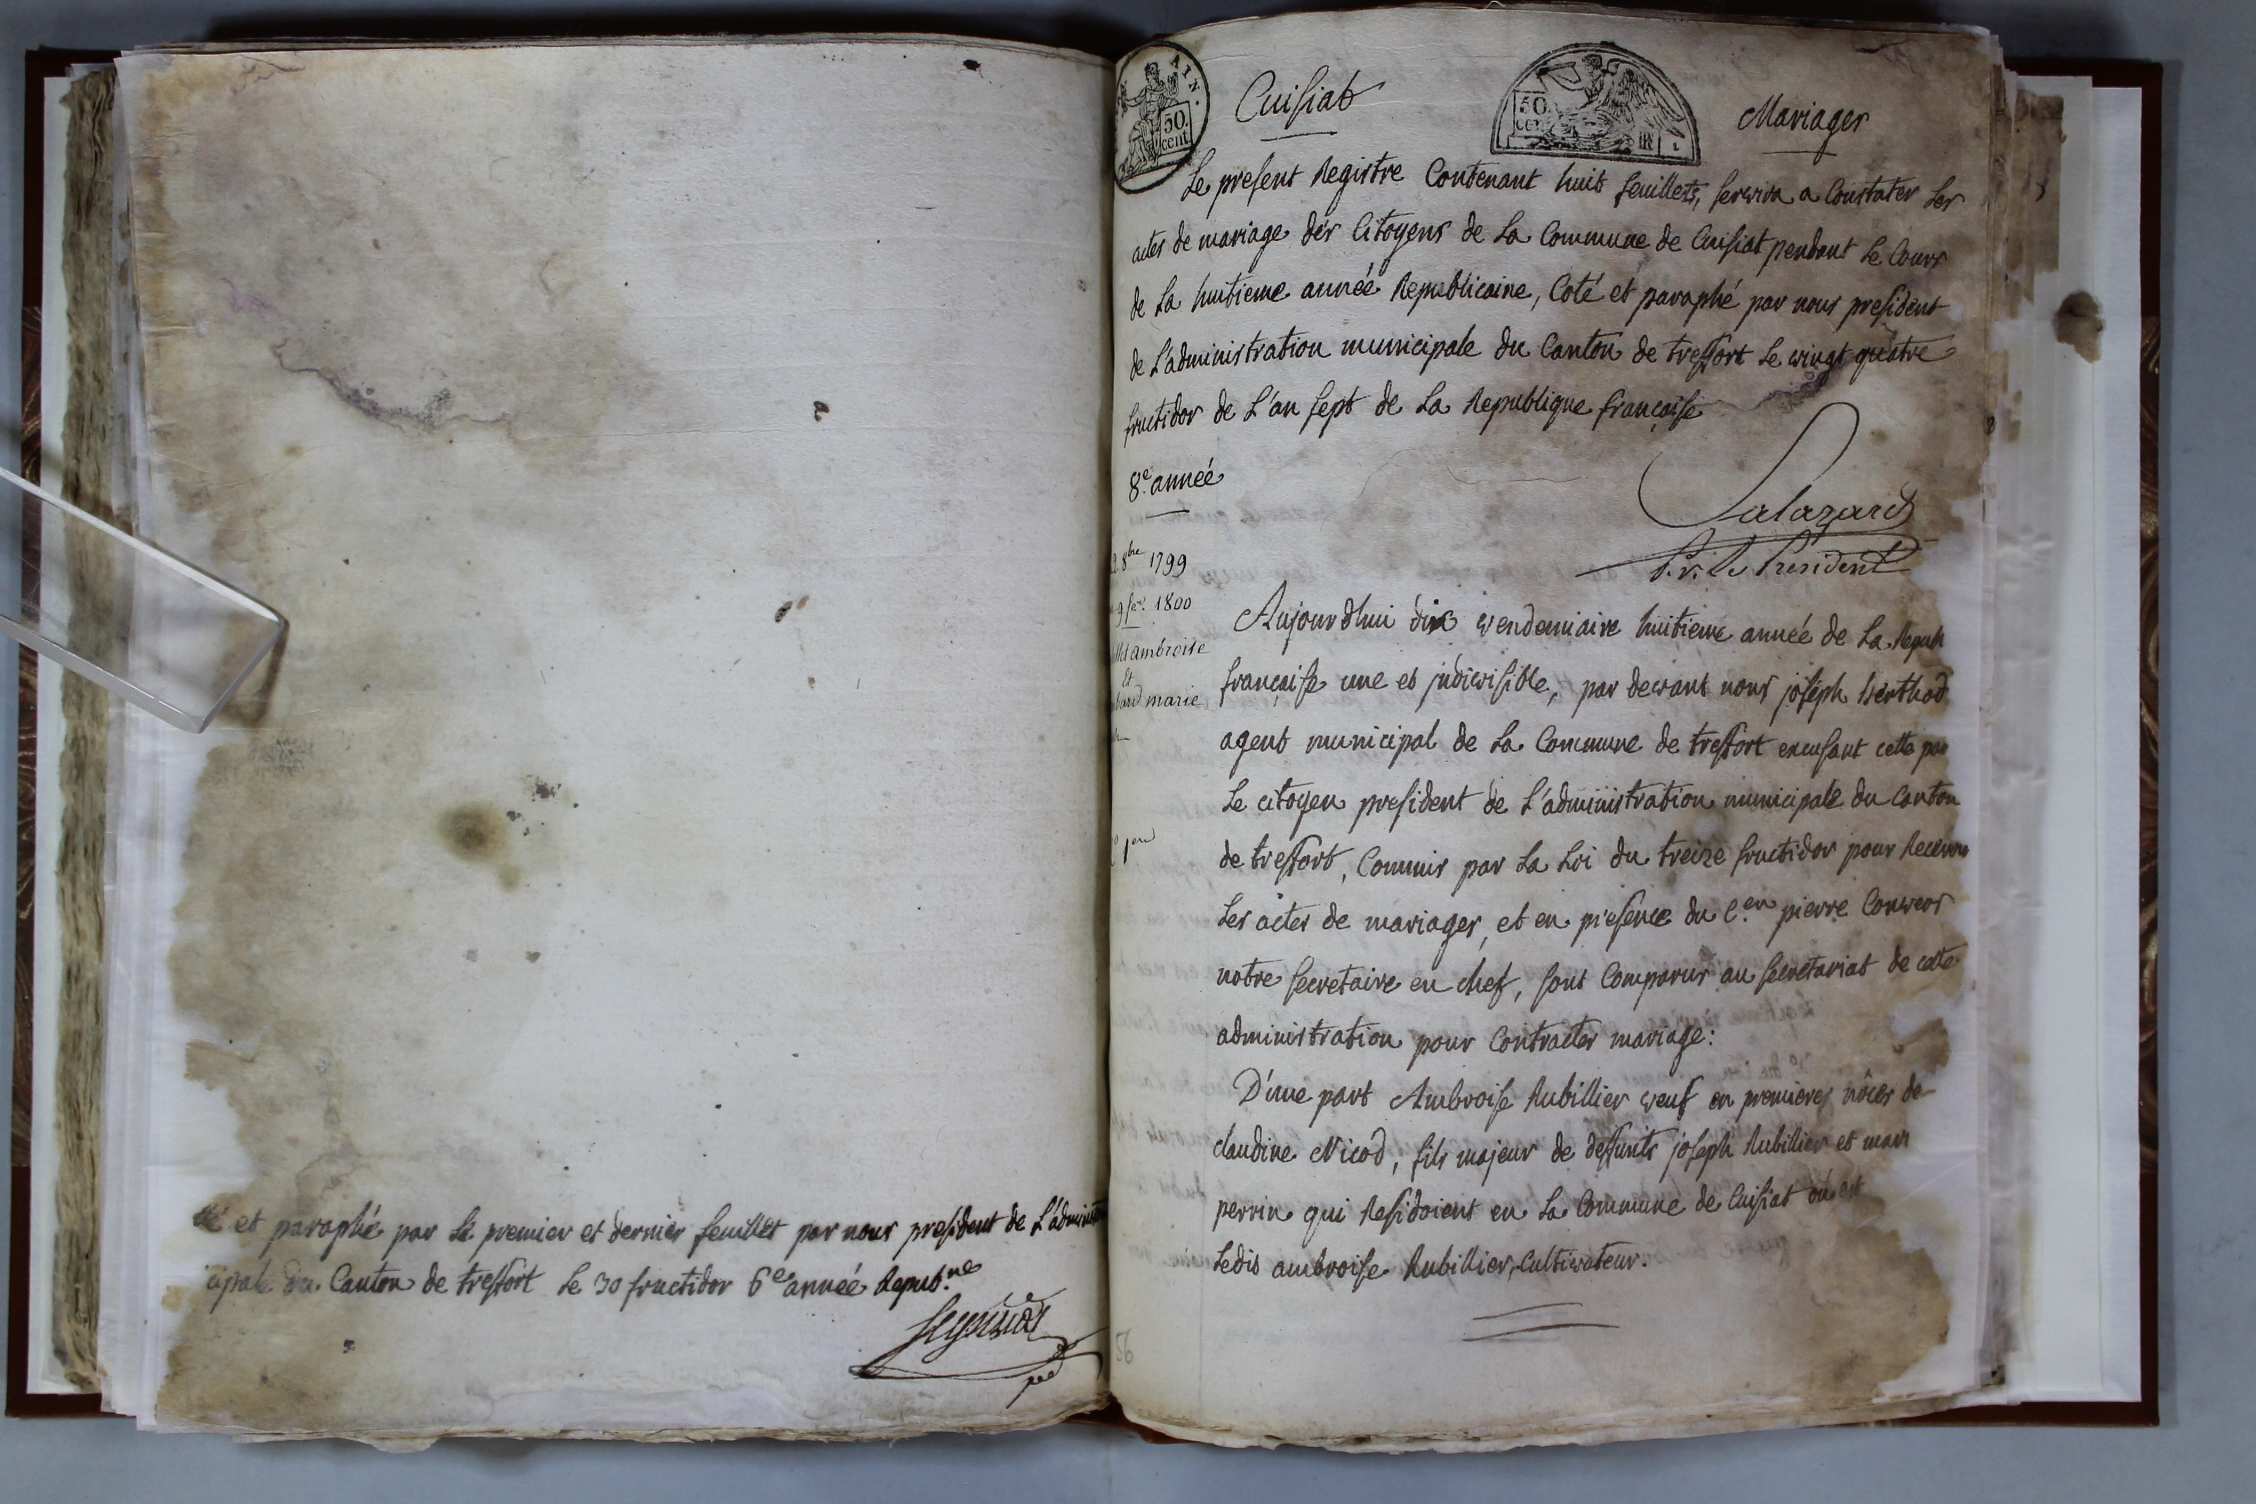 et paraphé par le premier et dernier feuillet par nous president de L'administ
cipale du Canton de treffort le 30 fructidor 6e année Repub.ne
AIN.
50.
cent
Cuisiat
50.
Mariages
Le present Registre Contenant huit feuillets, servira a Constater les
actes de mariage des Citoyens de la Commune de Cuisiat pendant le Cours
de la huitieme année Republicaine, Coté et paraphé par nous president
de L'administration municipale du Canton de treffort le vingt quatre
fructidor de L'an sept de la Republique francoise
8e. année
Salazard
P.r. Le Président
8bre 1799
1800
ambroise
et
marie
1er
Aujourdhui dix vendemiaire huitieme année de la Repub
française une et jndivisible, par devant nous joseph berthod
agent municipal de la Commune de treffort
Le citoyen president de L'administration municipale du Canton
de treffort, Commis par la Loi du treize fructidor pour Recevoir
Les actes de mariages, et en presence du C.en pierre Convers
notre secretaire en chef, sont Comparus au secretariat de cette
administration pour Contracter mariage:
D'une part Ambroise Rubillier veuf en premieres nôces de
claudine Nicod, fils majeur de deffunts joseph Rubillier et mari
perrin qui Residoient en la Commune de Cuisiat où est
Ledit ambroise Rubillier, Cultivateur.